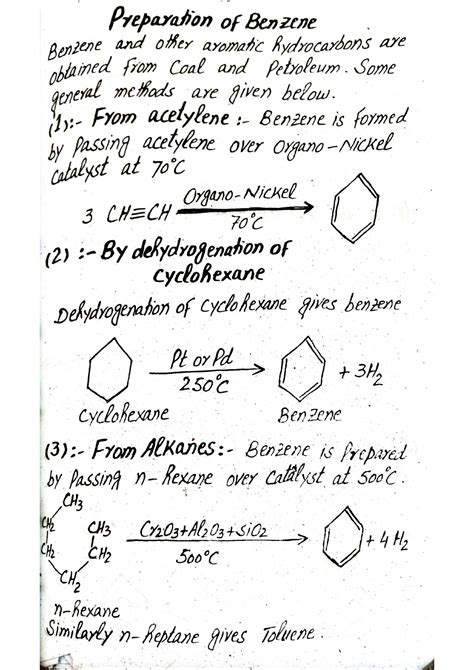 Preparation of Benzene
Benzene and other aromatic hydrocarbons are
obtained from Coal and Petroleum. Some
general methods are given below.
(1):- From acetylene :- Benzene is formed
by Passing acetylene over Organo-Nickel
Catalyst at 70°C
3 CH≡CH Organo-Nickel
70°C
(2) :- By dehydrogenation of
cyclohexane
Dehydrogenation of Cyclohexane gives benzene
Pt or Pd
250°C
+ 3H2
Cyclohexane Benzene
(3):- From Alkanes:- Benzene is Prepared
by Passing n-Hexane over Catalyst at 500°C.
CH3
CH2 CH3 Cr2O3+Al2O3+SiO2
CH2 CH2 500°C + 4 H2
CH2
n-Hexane
Similarly n-Heptane gives Toluene.